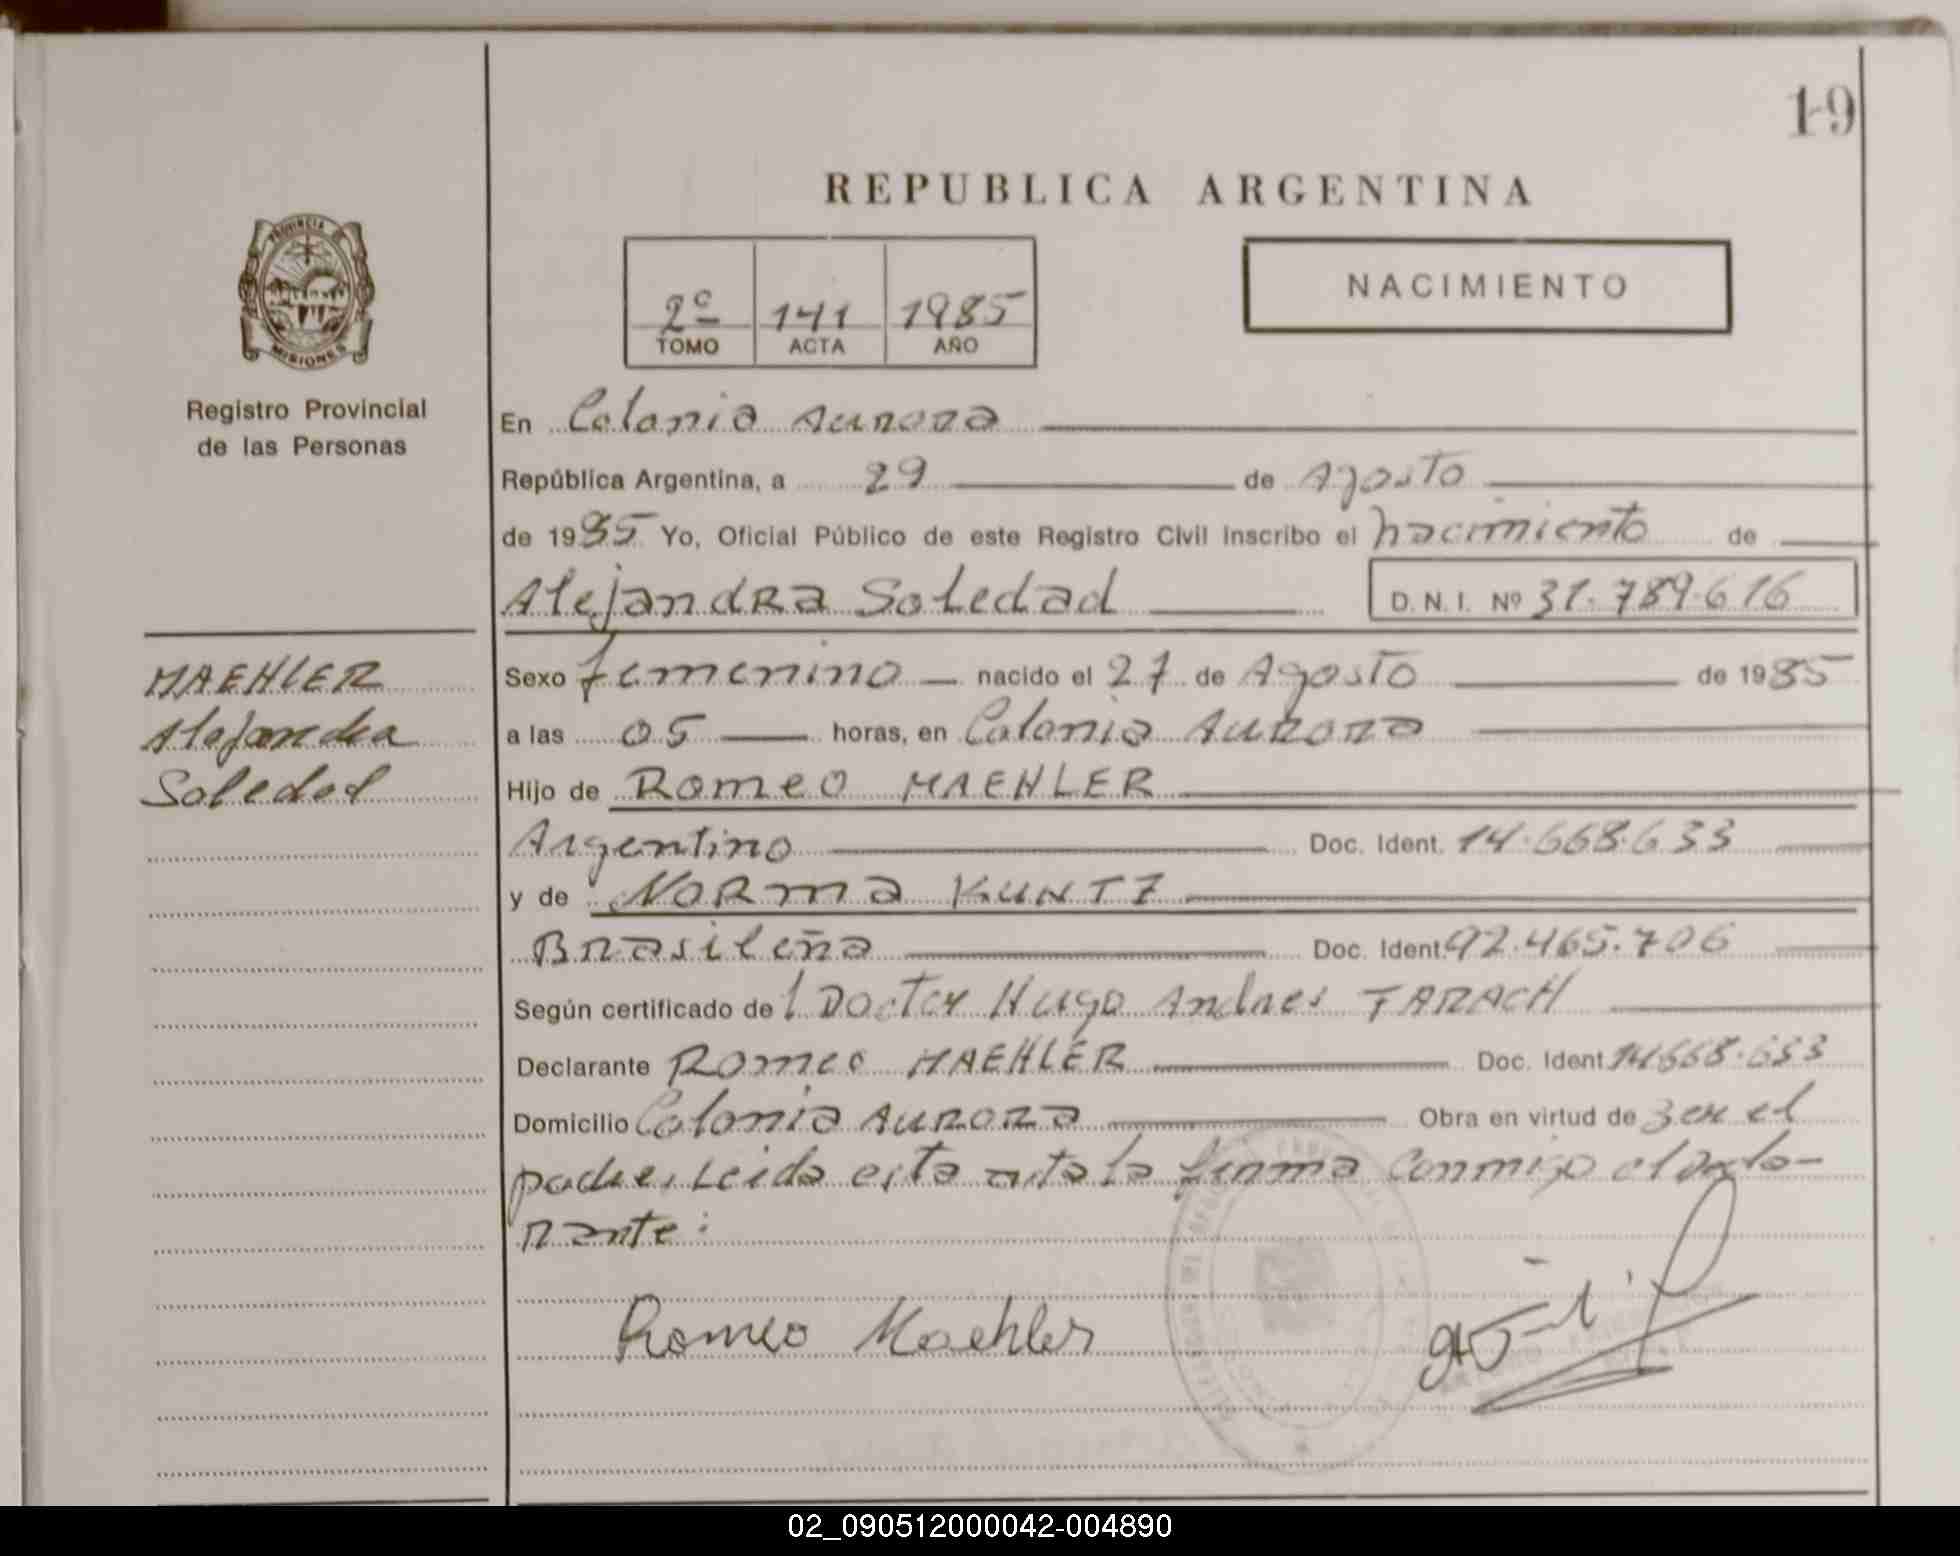 19
REPUBLICA ARGENTINA
PROVINCIA DE
MISIONES
2º 141 1985
TOMO ACTA AÑO
NACIMIENTO
Registro Provincial
de las Personas
En Colonia Aurora
República Argentina, a 29 de Agosto
de 1985 Yo, Oficial Público de este Registro Civil Inscribo el nacimiento de
Alejandra Soledad D. N. I. Nº 31.789.616
MAEHLER
Alejandra
Soledad
Sexo femenino nacido el 27 de Agosto de 1985
a las 05 horas, en Colonia Aurora
Hijo de Romeo MAEHLER
Argentino Doc. Ident. 14.668.633
y de Norma KUNTZ
Brasileña Doc. Ident. 92.465.706
Según certificado de l Doctor Hugo Andres TARACH
Declarante Romeo MAEHLER Doc. Ident. 14668.633
Domicilio Colonia Aurora Obra en virtud de ser el
padre, Leida esta acta la firma conmigo el decla-
rante:
Romeo Maehler
02_090512000042-004890